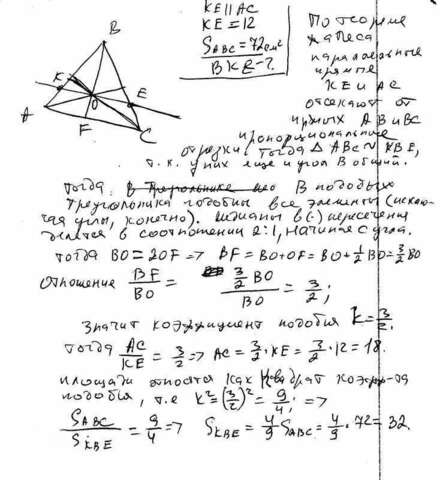 KE || AC
KE = 12
S_ABC = 72 см²
BKE - ?
B
K
E
O
A
F
C
По теореме
Фалеса
параллельные
прямые
KE и AC
отсекают от
прямых AB и BC
пропорциональные
отрезки. Тогда Δ ABC ~ KBE,
т.к. у них еще и угол B общий.
Тогда в треугольнике В подобных
треугольника подобны все элементы (исклю-
чая углы, конечно). Медианы в (·) пересечения
делятся в соотношении 2:1, начиная с угла.
Тогда BO = 2OF => BF = BO + OF = BO + 1/2 BO = 3/2 BO
Отношение BF/BO = (3/2 BO)/BO = 3/2;
Значит коэффициент подобия k = 3/2.
Тогда AC/KE = 3/2 => AC = 3/2 · KE = 3/2 · 12 = 18.
Площади относятся как квадрат коэфф-та
подобия, т.е k² = (3/2)² = 9/4; =>
S_ABC/S_KBE = 9/4 => S_KBE = 4/9 S_ABC = 4/9 · 72 = 32.